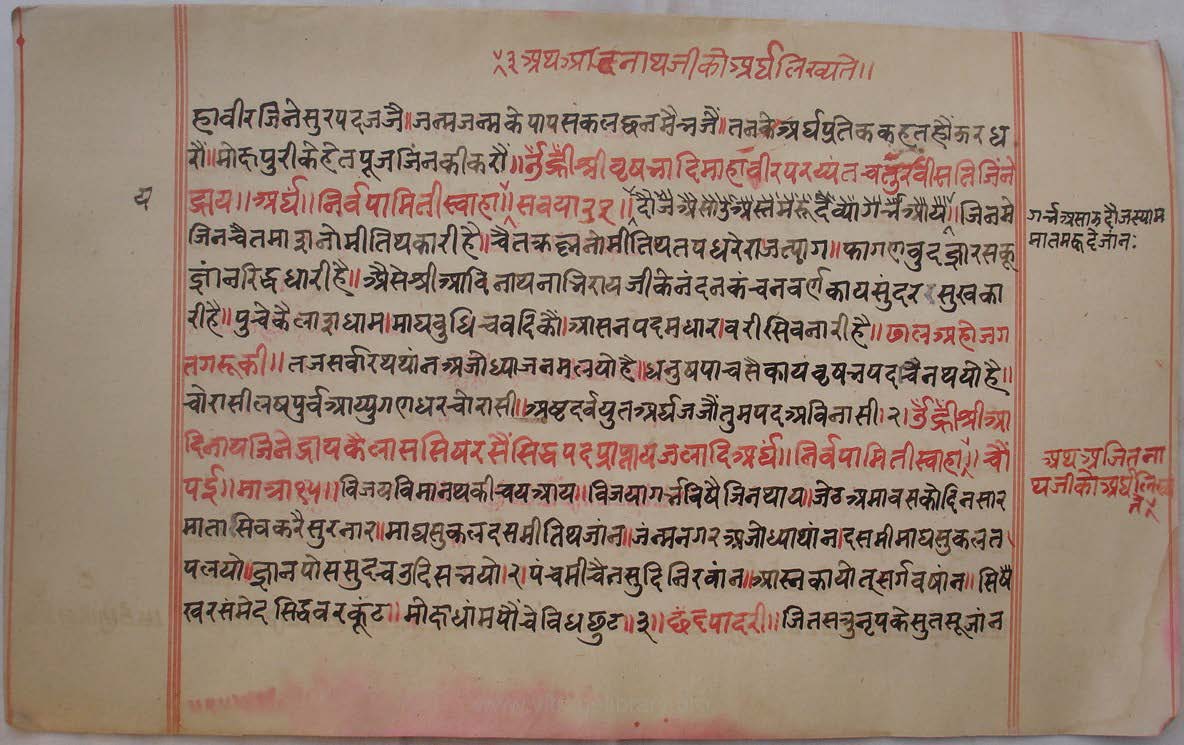 ३ अथ आदनाथजी को अर्घ लिख्यते॥
हावीर जिनेसुर पद जजै॥ जन्म जन्म के पाप संकल छन मै भजै॥ तनके अर्घ पुति कहत हौं कर ध
रौं॥ मोक्ष पुरी के हेत पूज जिंन की करौं॥ उँ ह्रीँ श्री वृषभादि माहावीर परय्यंत चतुरवीसति जिंने
द्राय॥ अर्घं॥ निर्वपामिती स्वाहा॥ सवया २२॥ जिनमे
य
गर्भ असाढ दौज स्याम
मात मरू दे जान:
जिन चैत मा नोमी तिथकारी है॥ चैत क्रस्न नोमी तिथ तप धरे राज त्याग॥ फागण वुद ग्यारस कू
ज्ञांन रिद्ध धारी है॥ अैसे श्री आदिनाथ नाभिराय जी के नंदन कंचन वर्ण काय सुंदर सुखका
री है॥ पुचे कैलाश धाम। माघ वुधि चवदि कौ। आसन पदम धार। वरी सिवनारी है॥ ढाल अहो जग
तगरू की॥ तज सर्वारथ थांन अजोध्या जनम लयो है॥ धनुष पाचसै काय वृषभ पद चैन थयो है॥
चोरासी लष पुर्व आय्यु गणधर चोरासी॥ अष्ट दर्व युत अर्घ जजौं तुम पद अविनासी। २। उँ ह्रीँ श्री आ
दिनाथ जिनेद्राय कैलास सिषर सैं सिद्ध पद प्राप्ताय जलादि अर्घं॥ निर्वपामिती स्वाहा॥ चौ
अथ अजितना
थजी को अर्घ लिख्य
ते
पई॥ मात्रा १५॥ विजय विमान थकी चय आय॥ विजया गर्भ विषै जिन थाय॥ जेठ अमावस को दिन सार
माता सिव करै सुर नार॥ माघ सुकल दसमी तिथ जांन॥ जंन्म नगर अजोध्या थांन। दसमी माघ सुकल त
प लयो॥ ज्ञान पोस सुद चउदिस भयो। २। पंचमी चैत सुदि निरवांन॥ आस्न कायोत्सर्ग वषांन॥ सिषै
खर संमेद सिद्धवर कूंट॥ मोक्ष धांम पौंचे विध छुट॥ ३॥ छंद पादरी॥ जितसत्रु नृप के सुत सूजांन